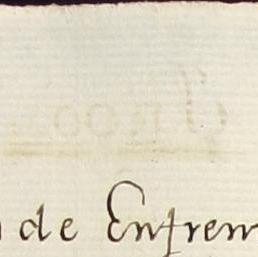 de Entrem